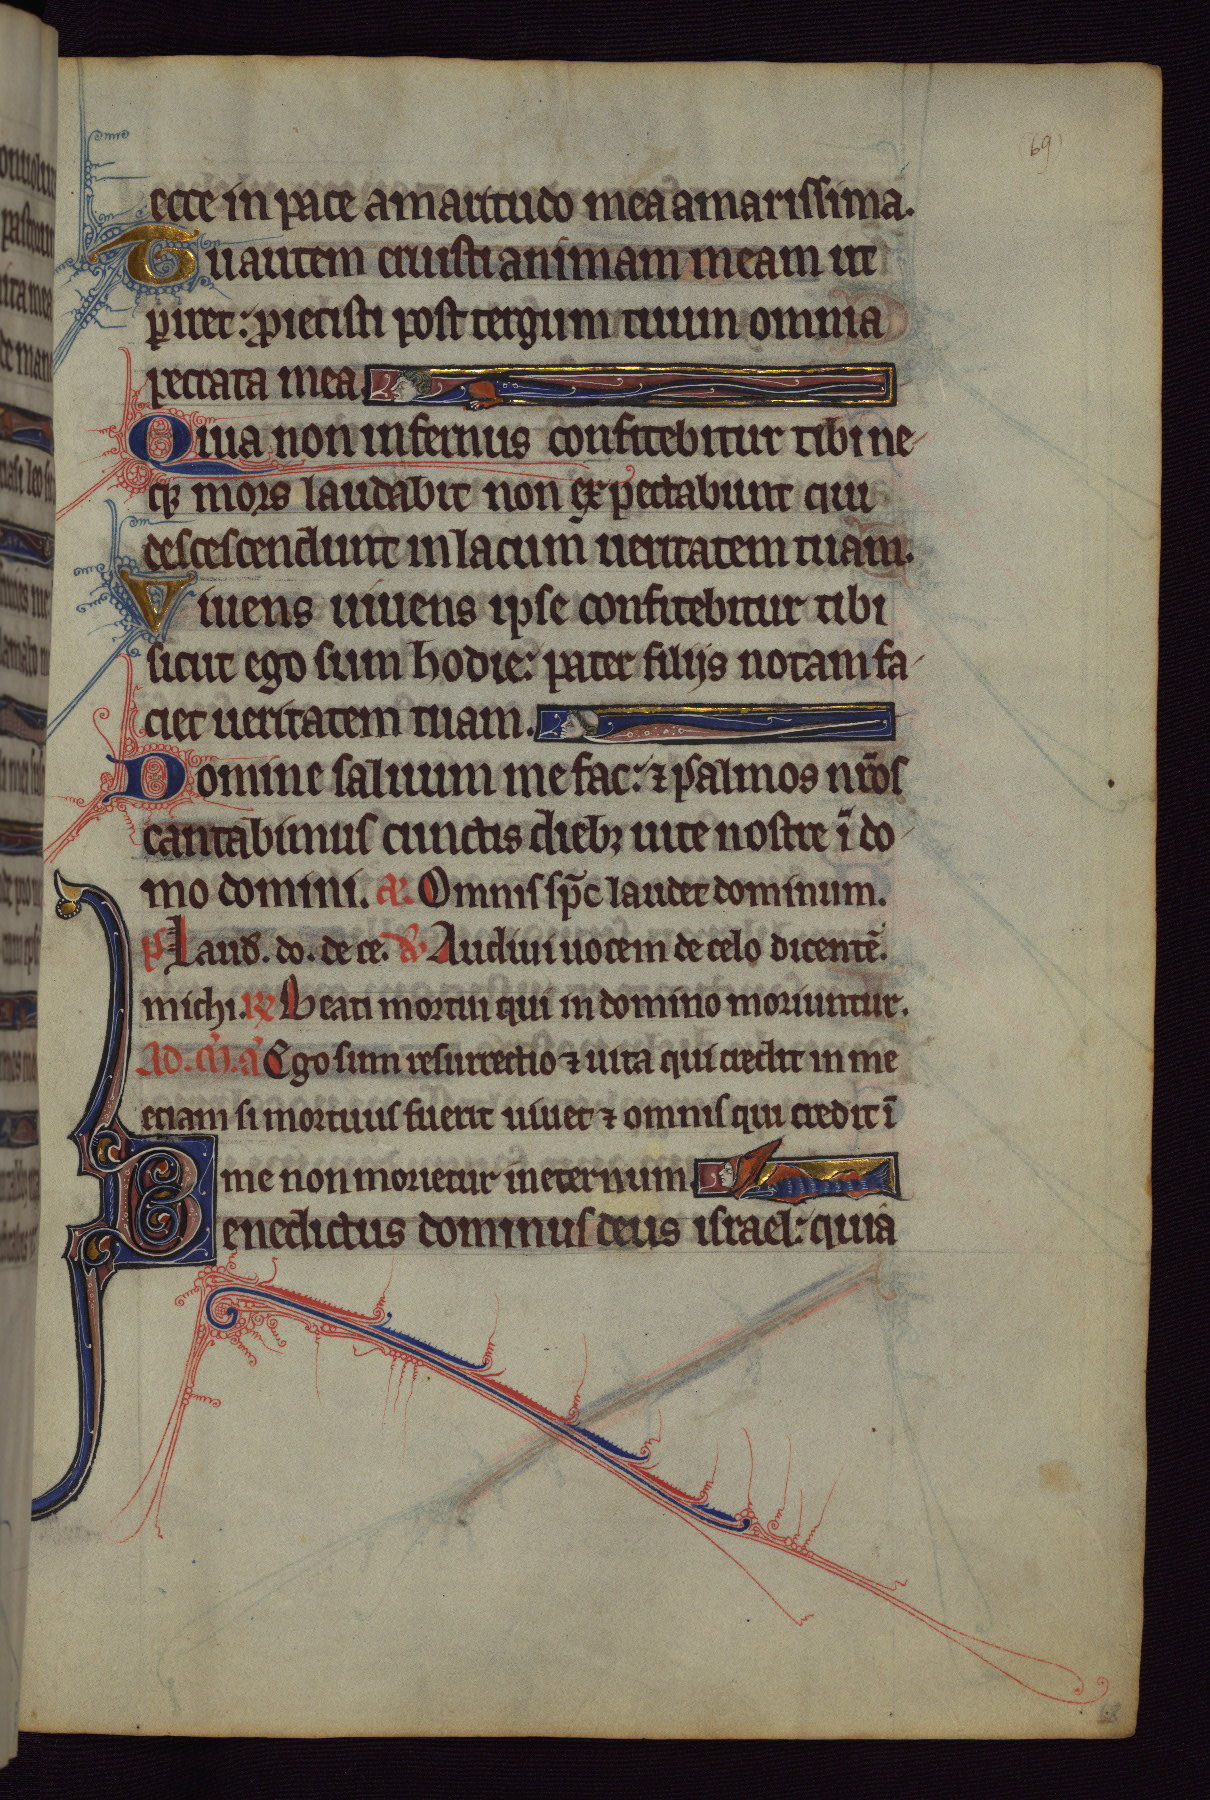 69
ecce in pace amaritudo mea amarissima.
Tu autem eruisti animam meam ut
piret: proiecisti post tergum tuum omnia
peccata mea
Quia non infernus confitebitur tibi ne-
qꝫ mors laudabit non expectabunt qui
descescendunt in lacum ueritatem tuam.
Viuens uiuens ipse confitebitur tibi
sicut ego sum hodie: pater filijs notam fa-
ciet ueritatem tuam.
Domine saluum me fac: ⁊ psalmos nr̄os
cantabimus cunctis diebꝫ uite nostre ī do-
mo domini. añ. Omnis sp̄c laudet dominum.
ps Laud. do. de ce. v̄ Audiui uocem de celo dicentē
michi. ꝶ Beati mortui qui in domino moriuntur.
Ad. m̄. ā Ego sum resurrectio ⁊ uita qui credit in me
eciam si mortuus fuerit uiuet ⁊ omnis qui credit ī
me non morietur in eternum
Benedictus dominus deus israel: quia
68